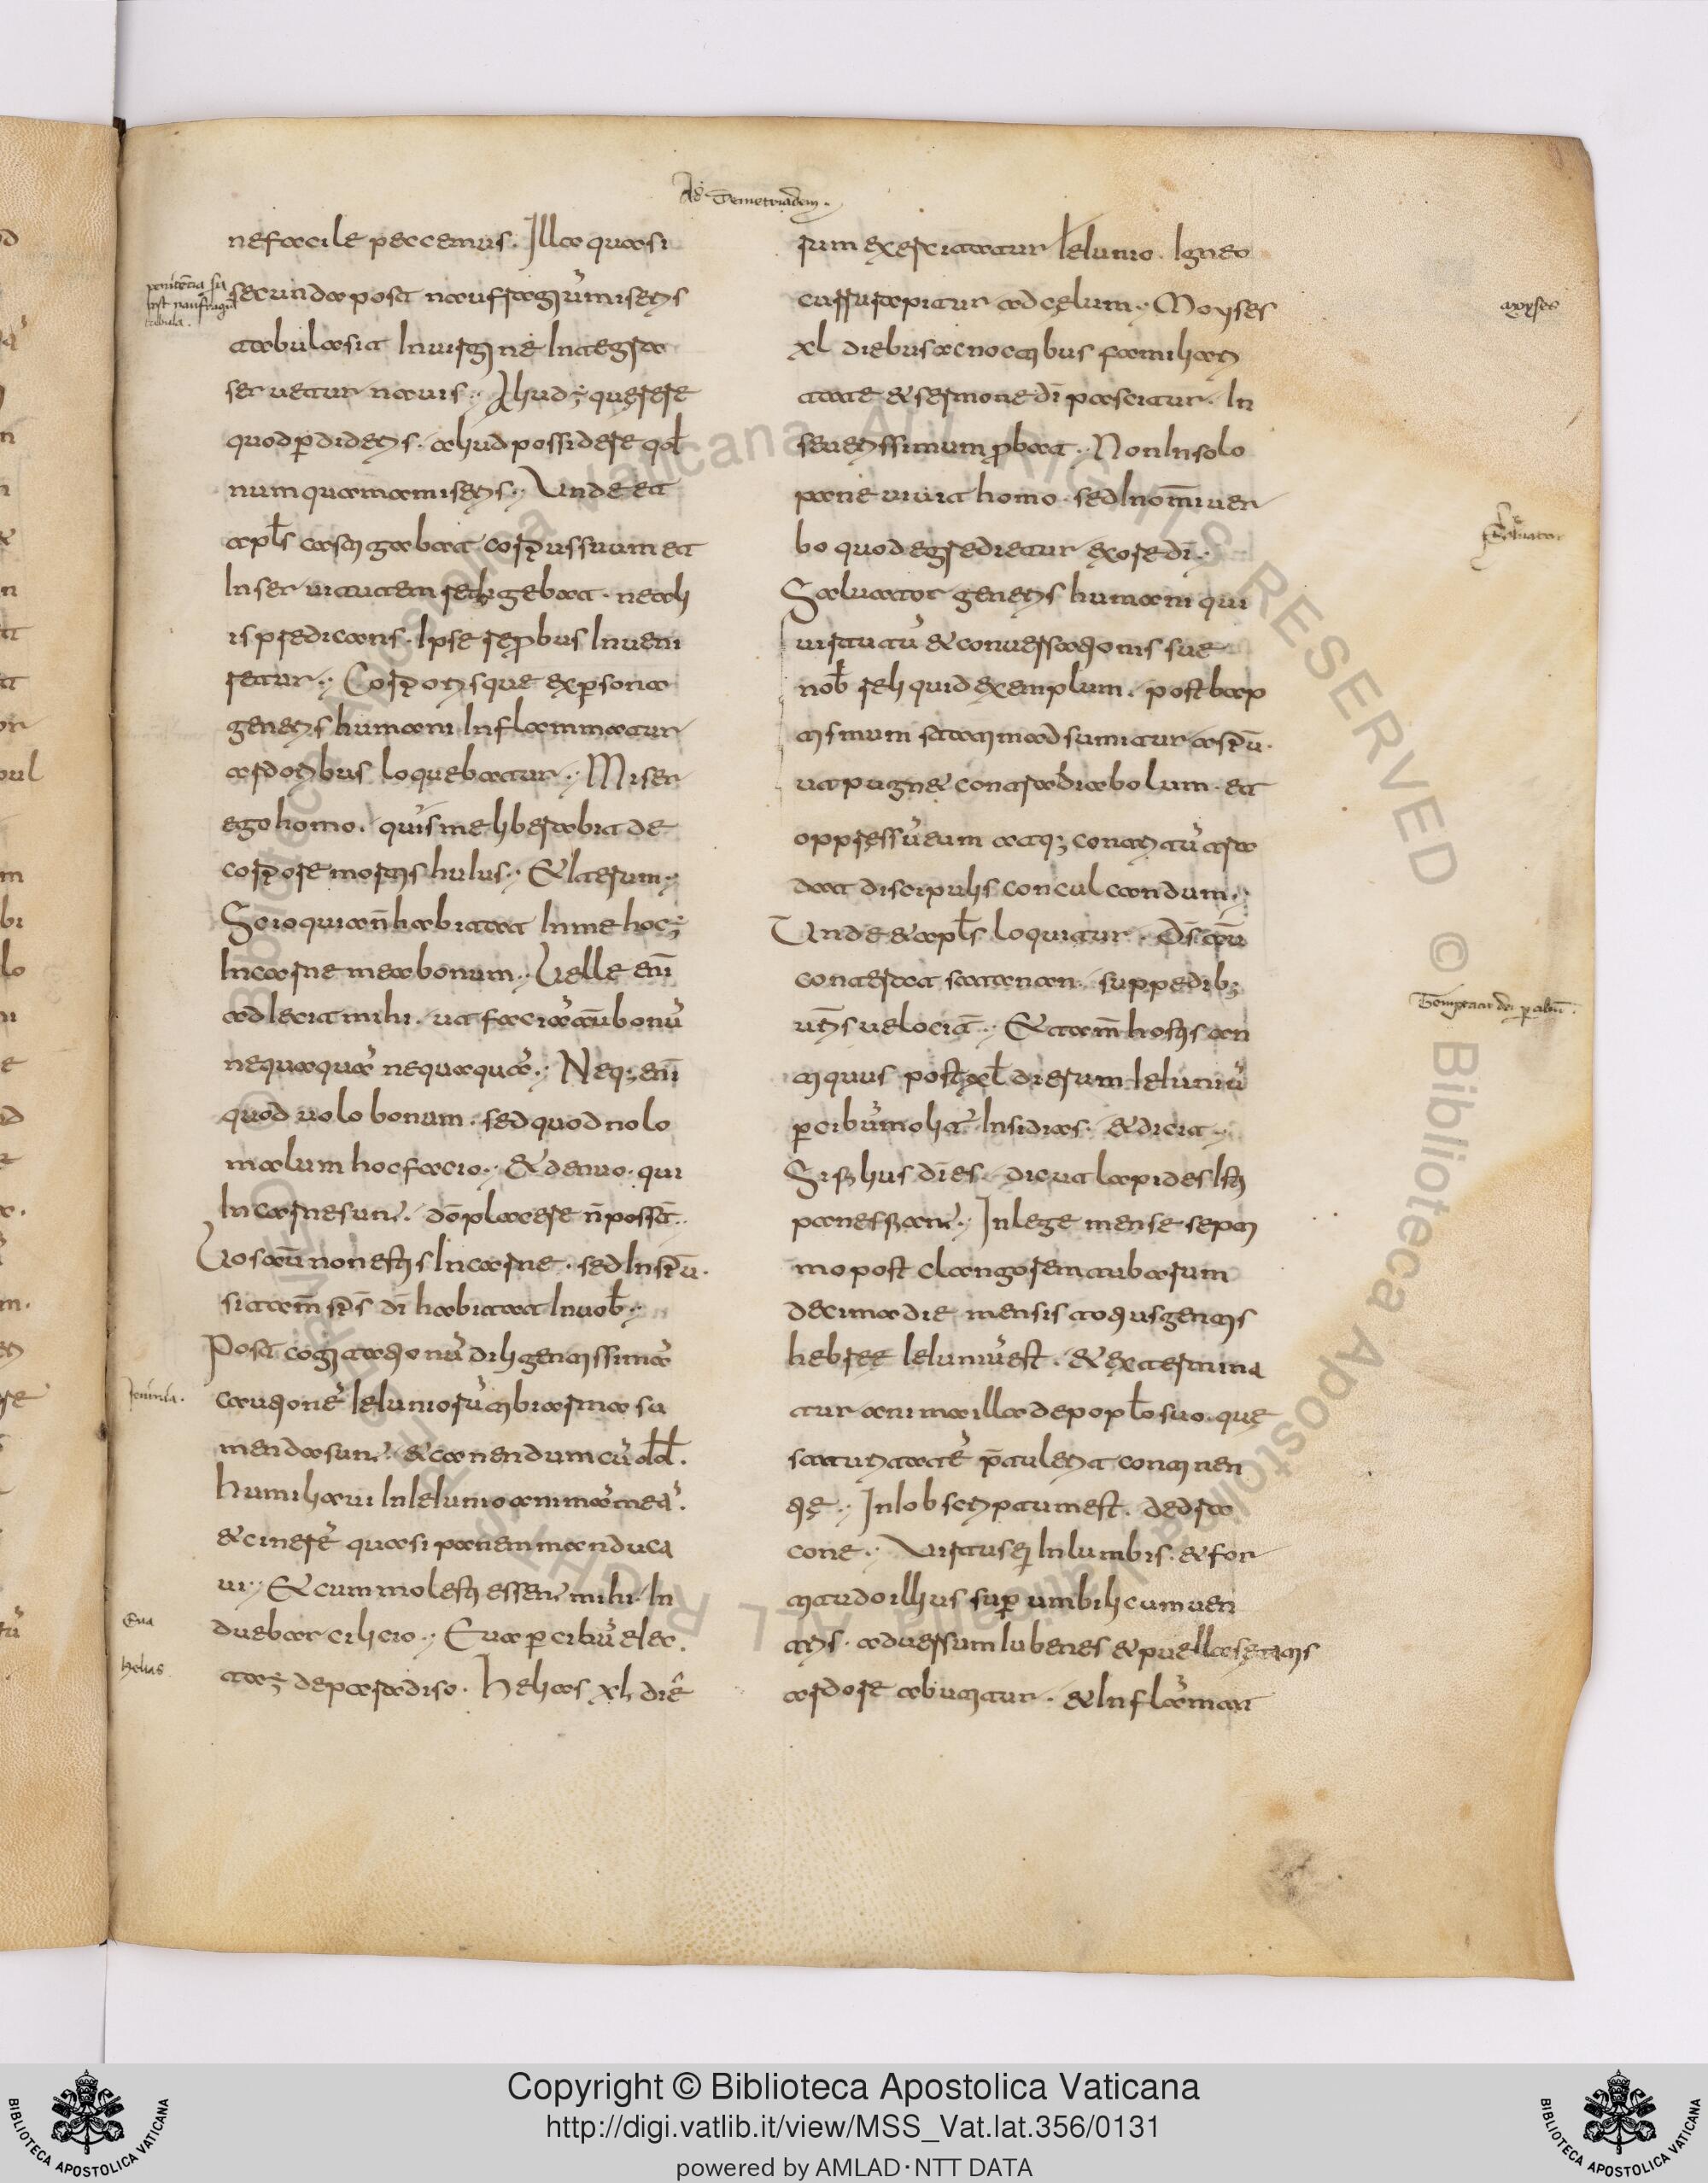 Ad Demetriadem.
ne facile peccemus. Illa quasi
secunda post naufragiū miseris
tabula sit In uirgine Integra
seruetur nauis. Aliud ē querere
quod p̄dideris. aliud possidere qd̄
numquam amiseris. Unde et
apl̄s castigabat corpus suum et
In seruitutem redigebat. ne ali
is predicans. Ipse reprobus Inueni
retur. Corporisque ex persona
generis humani Inflammatur
ardoribus loquebatur. Miser
ego homo. quis me liberabit de
corpore mortis huius. Et Iterum
Scio quia n̄ habitat In me hoc ē
In carne mea bonum. Velle eni
adiecit mihi. ut faciā autē bonū
nequaquā nequaquā. Neq; eni
quod uolo bonum. sed quod nolo
malum hoc facio. & denuo. qui
In carne sunt. dō placere n̄ possīt
Vos aūt non estis In carne. sed In sp̄u.
si tam̄ sp̄s dī habitat In uob̄
Post cogitationū diligentissimā
cautionē Ieiuniorū tibi arma su
menda sunt. & canendum cū dd̄.
humiliaui In Ieiunio animā meā.
& cinerē quasi panem manduca
ui. Et cum molesti essent mihi In
duebar cilicio. Eua p̄ cibū eiec
ta ē de paradiso. Helias xl diē
rum exercitatur Ieiunio. Igneo
curru rapitur ad cęlum. Moyses
xl diebus ac noctibus familiari
tate & sermone dī pascitur. In
se uerissimum p̄bat. Non In solo
pane uiuit homo. sed In om̄i uer
bo quod egreditur ex ore dī.
Saluator generis humani qui
uirtutū & conuersationis sue
nob̄ reliquid exemplum. post bap
tismum statim adsumitur a sp̄u.
ut pugnet contra diabolum. et
oppressū eum atq; contritū tra
dat discipulis conculcandum.
Unde & apl̄s loquitur. D̄s aūt
conterat satanan. sub pedib;
uris uelocit̄. Et tam̄ hostis an
tiquus post xl̄ dierum Ieiuniū
p̄ cibū molit̄ Insidias. & dicit
Si filius dī es. dic ut lapides Isti
panes fiant. In lege mense septi
mo post clangorem tubarum
decima die mensis totius gentis
hebree Ieiuniū est. & extermina
tur anima illa de poplo suo. quę
saturitatē p̄tulerit continen
tię. In Iob scriptum est. de dra
cone. Uirtus ei In lumbis. & for
titudo illius sup̄ umbilicum uen
tris. aduersum Iubenes & puellas ętatis
ardore abutitur. & Inflāmat
penitētia sit
post naufragiū
tabula.
Ieiunia.
Eua
helias
moyses
Saluator
Temptatur dn̄s per cibū.
Copyright © Biblioteca Apostolica Vaticana
http://digi.vatlib.it/view/MSS_Vat.lat.356/0131
powered by AMLAD·NTT DATA
BIBLIOTECA APOSTOLICA VATICANA
BIBLIOTECA APOSTOLICA VATICANA